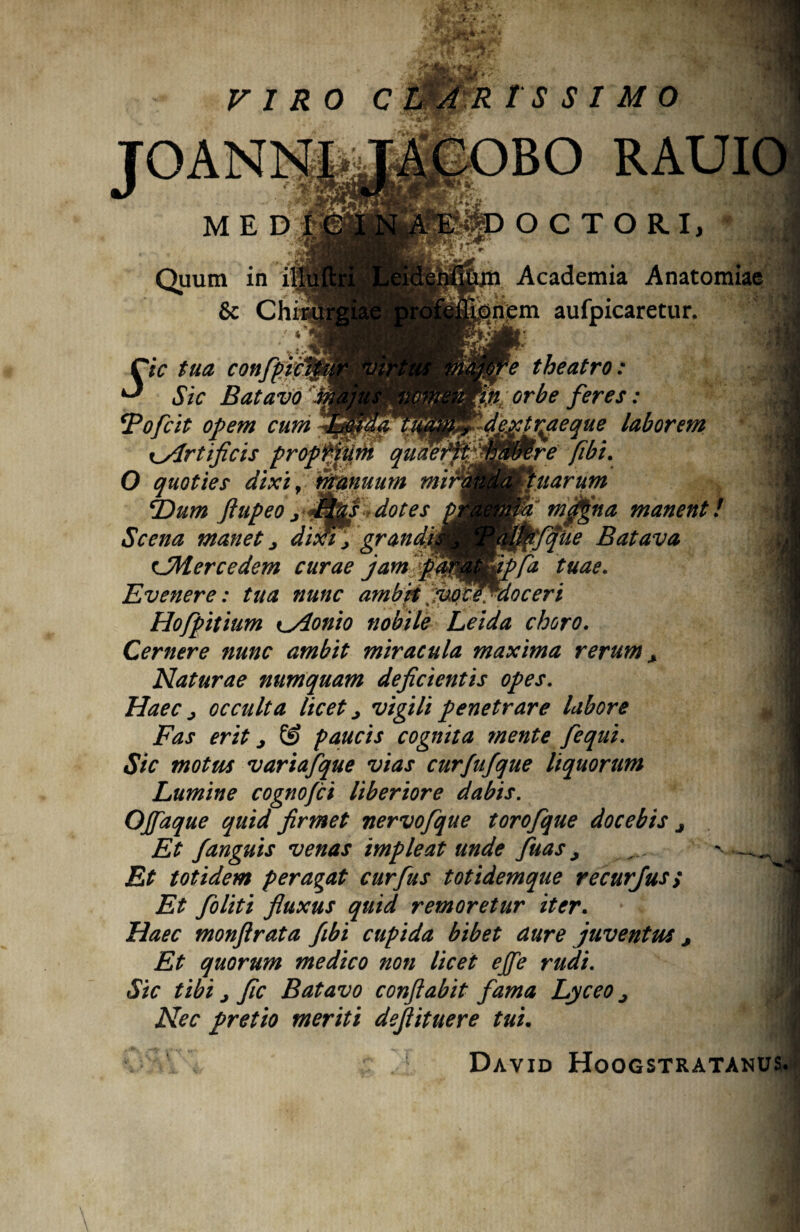 VIRO CLARISSIMO
JOANNI JACOBO RAUIO
MEDICINAE DOCTORI,
Quum in illuſtri Leidenſium Academia Anatomiae
& Chirurgiae profeſſionem auſpicaretur.
Sic tua conſpicitur virtus majore theatro:
Sic Batavo majus nomen in orbe feres:
Poſcit opem cum Leida tuam, dextraeque laborem
Artificis proprium quaerit habere ſibi.
O quoties dixi, manuum miranda tuarum
Dum ſtupeo, Has dotes praemia magna manent!
Scena manet, dixi, grandis, Batava
Mercedem curae jam parat ipſa tuae.
Evenere: tua nunc ambit voce doceri
Hoſpitium Aonio nobile Leida choro.
Cernere nunc ambit miracula maxima rerum,
Naturae numquam deficientis opes.
Haec, occulta licet, vigili penetrare labore
Fas erit, & paucis cognita mente ſequi.
Sic motus variaſque vias curſuſque liquorum
Lumine cognoſci liberiore dabis.
Oſſaque quid firmet nervoſque toroſque docebis,
Et ſanguis venas impleat unde ſuas,
Et totidem peragat curſus totidemque recurſus;
Et ſoliti fluxus quid remoretur iter.
Haec monſtrata ſibi cupida bibet aure juventus,
Et quorum medico non licet eſſe rudi.
Sic tibi, ſic Batavo conſtabit fama Lyceo,
Nec pretio meriti deſtituere tui.
DAVID HOOGSTRATANUS.